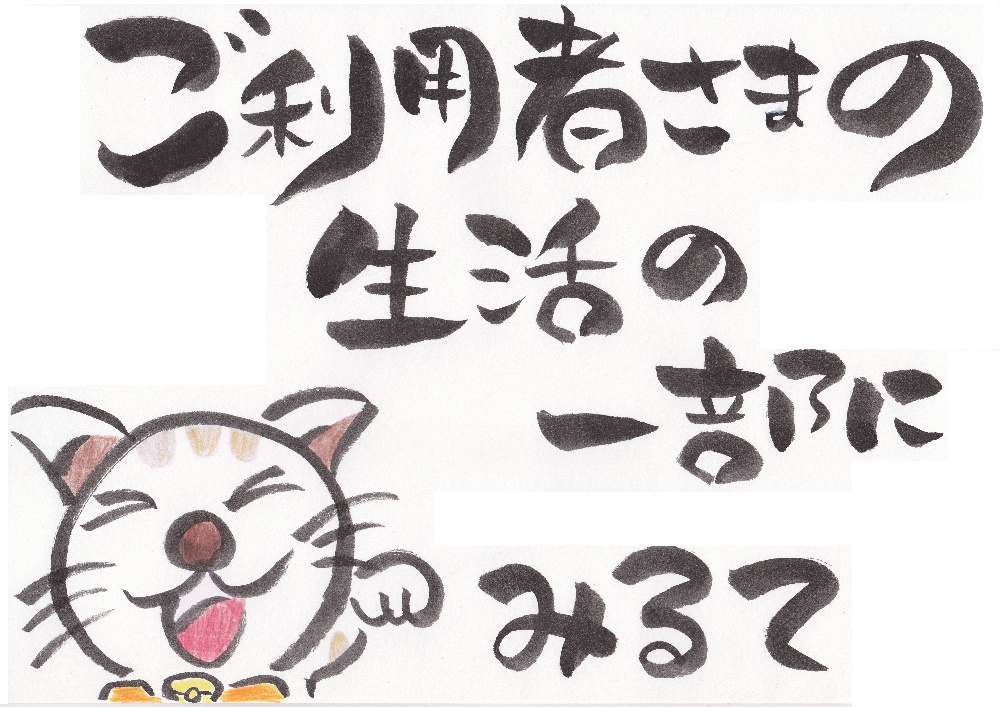 ご利用者さまの
生活の
一部に
みるて